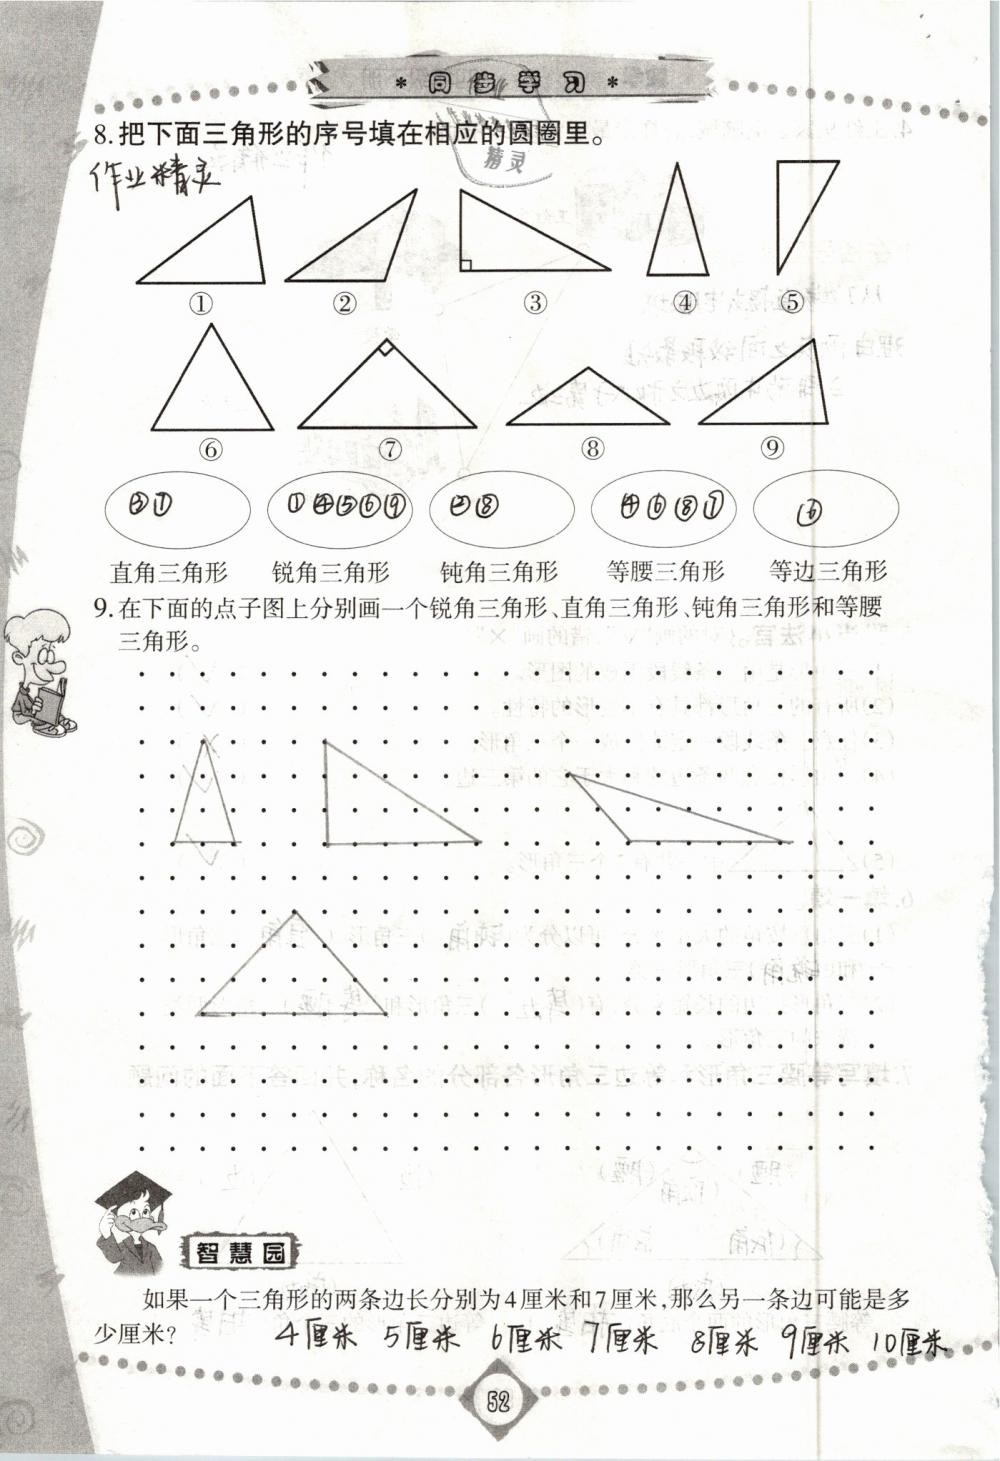 *同步学习*
8.把下面三角形的序号填在相应的圆圈里。
精灵
作业精灵
① ② ③ ④ ⑤
⑥ ⑦ ⑧ ⑨
③⑦ ①④⑤⑥⑨ ②⑧ ④⑥⑧⑦ ⑥
直角三角形 锐角三角形 钝角三角形 等腰三角形 等边三角形
9.在下面的点子图上分别画一个锐角三角形、直角三角形、钝角三角形和等腰
三角形。
智慧园
如果一个三角形的两条边长分别为4厘米和7厘米,那么另一条边可能是多
少厘米? 4厘米 5厘米 6厘米 7厘米 8厘米 9厘米 10厘米
52